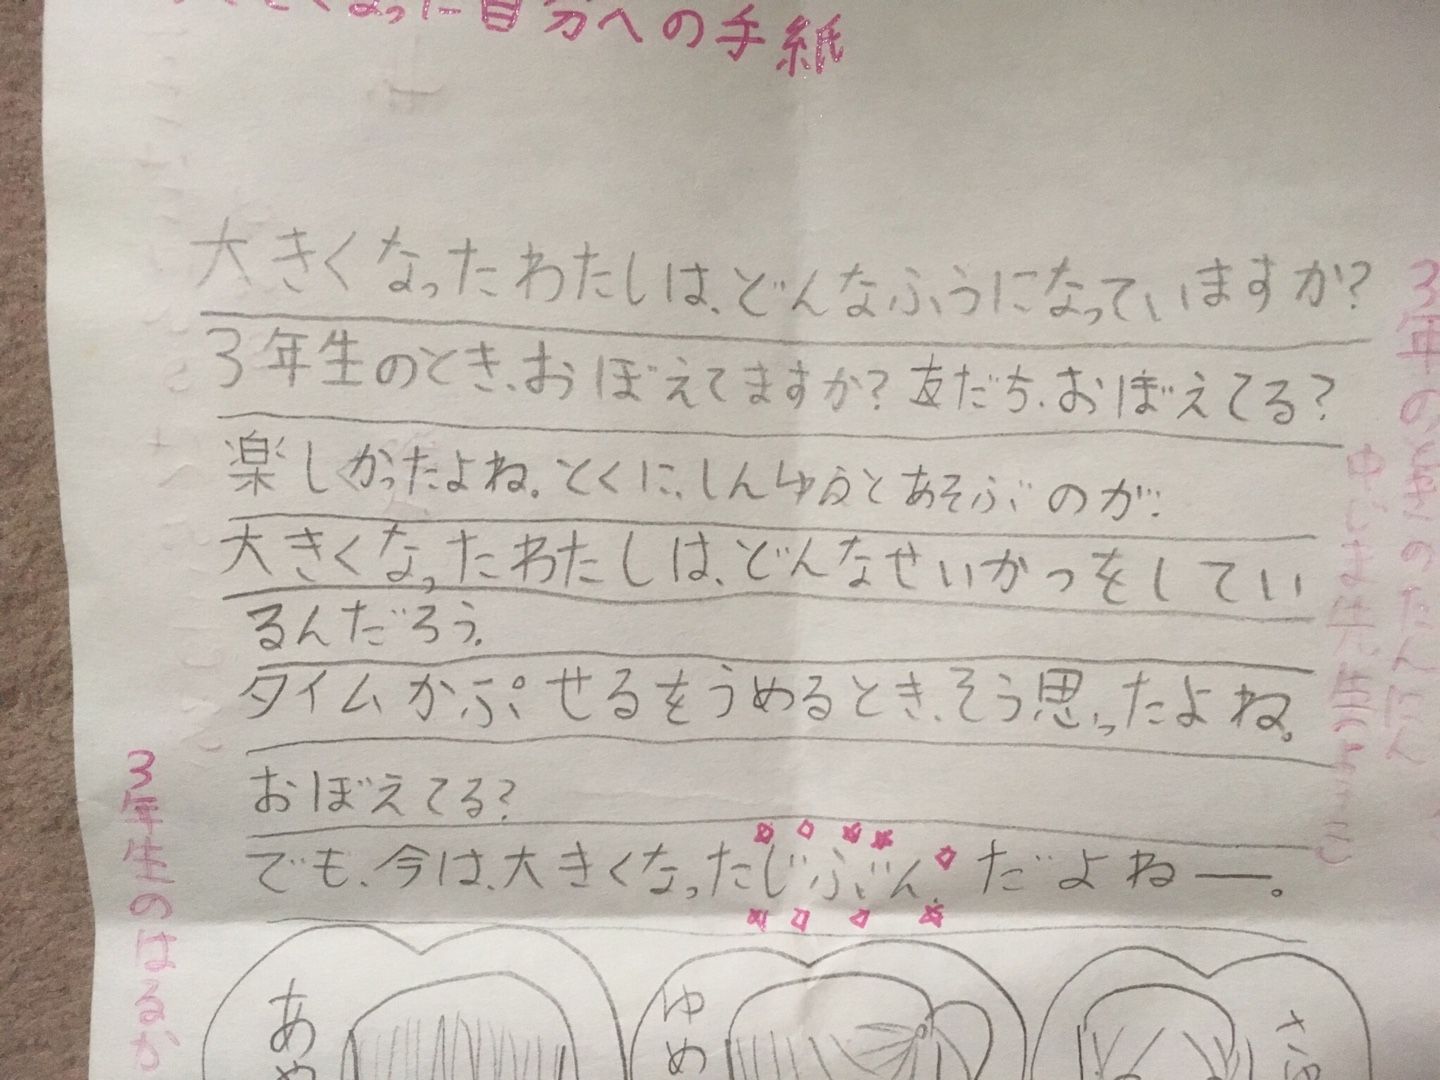 くなった自分への手紙
大きくなったわたしは、どんなふうになっていますか?
3年生のとき、おぼえてますか?友だち、おぼえてる?
楽しかったよね。とくに、しんゆうとあそぶのが、
大きくなったわたしは、どんなせいかつをしてい
るんだろう。
タイムかぷせるをうめるとき、そう思ったよね。
おぼえてる?
でも、今は、大きくなったじぶん、だよねー。
3年のときのたんにん
3年生のはるか
あや
ゆめ
さゆ